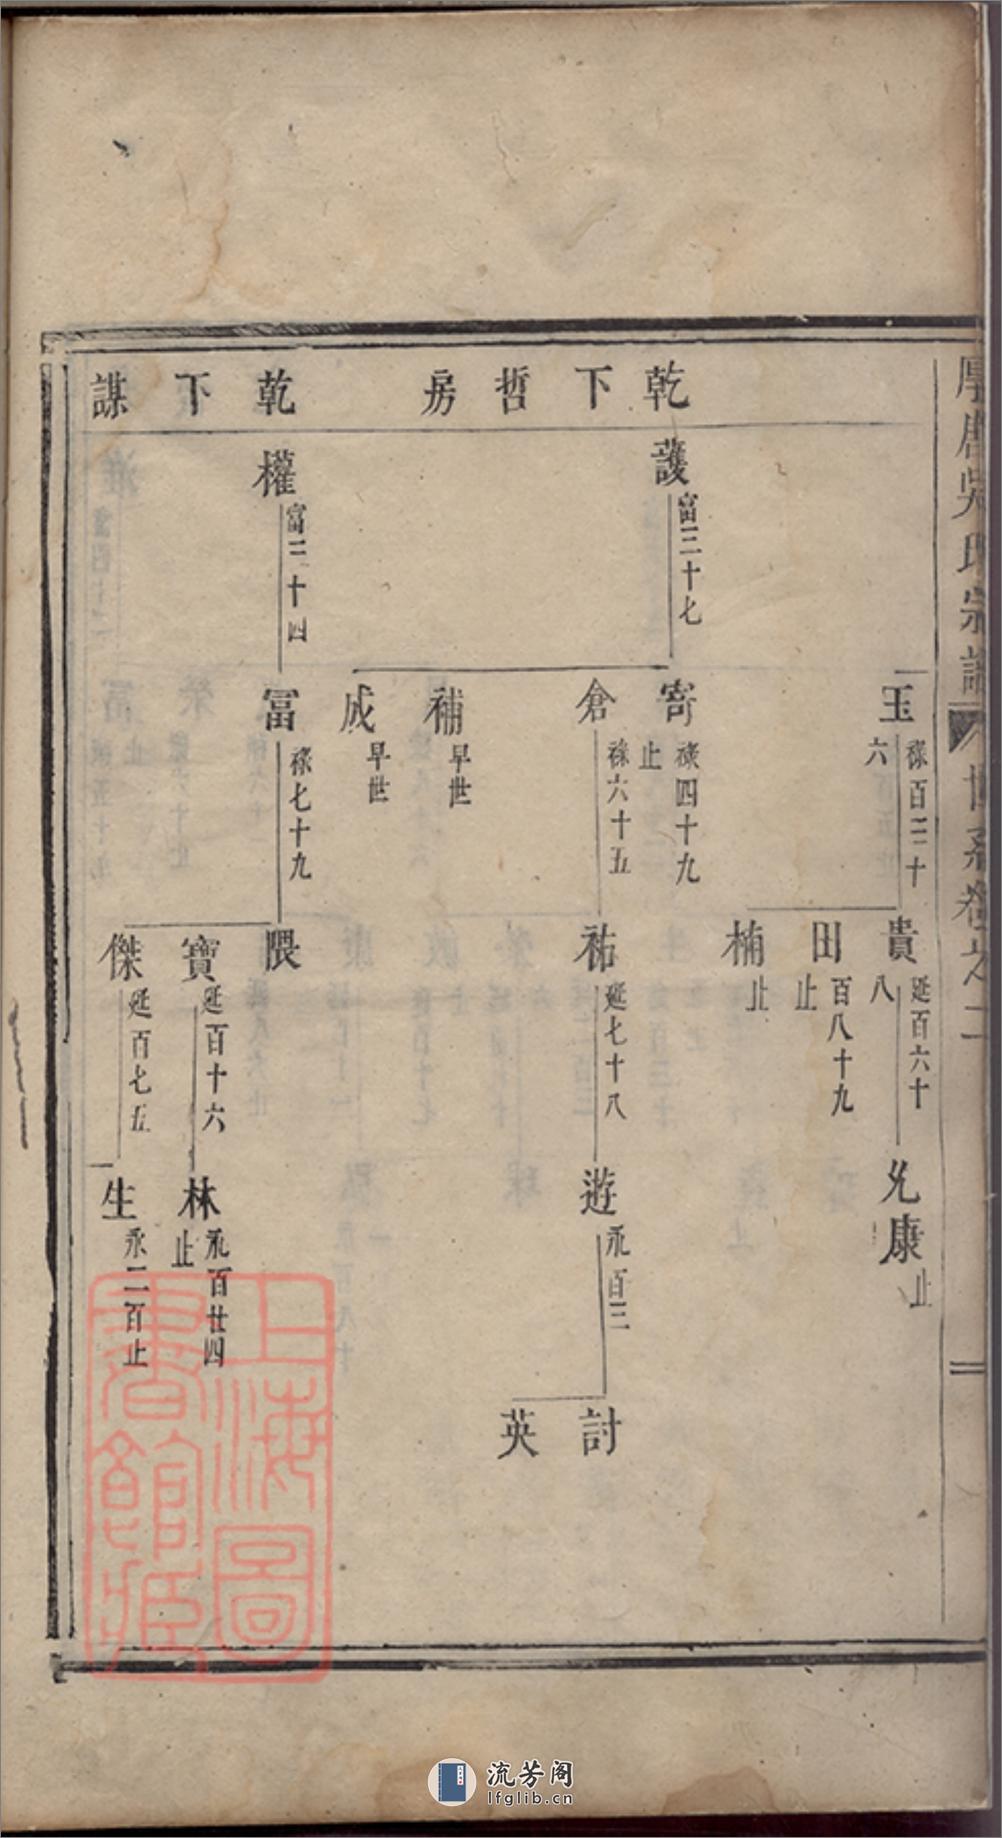 厚唐吳氏宗譜 世系卷之二
乾下哲房
乾下謀
玉 祿百二十六
貴 延百六十八
田 百八十九止
楠 止
允康 止
護 富三十七
寄 祿四十九止
倉 祿六十五
補 早世
成 早世
祐 延七十八
遊 永百三
討
英
權 富二十四
富 祿七十九
隈
寶 延百十六
傑 延百七五
林 永百廿四止
生 永二百止
上海圖書館藏
流芳阁
lfglib.cn